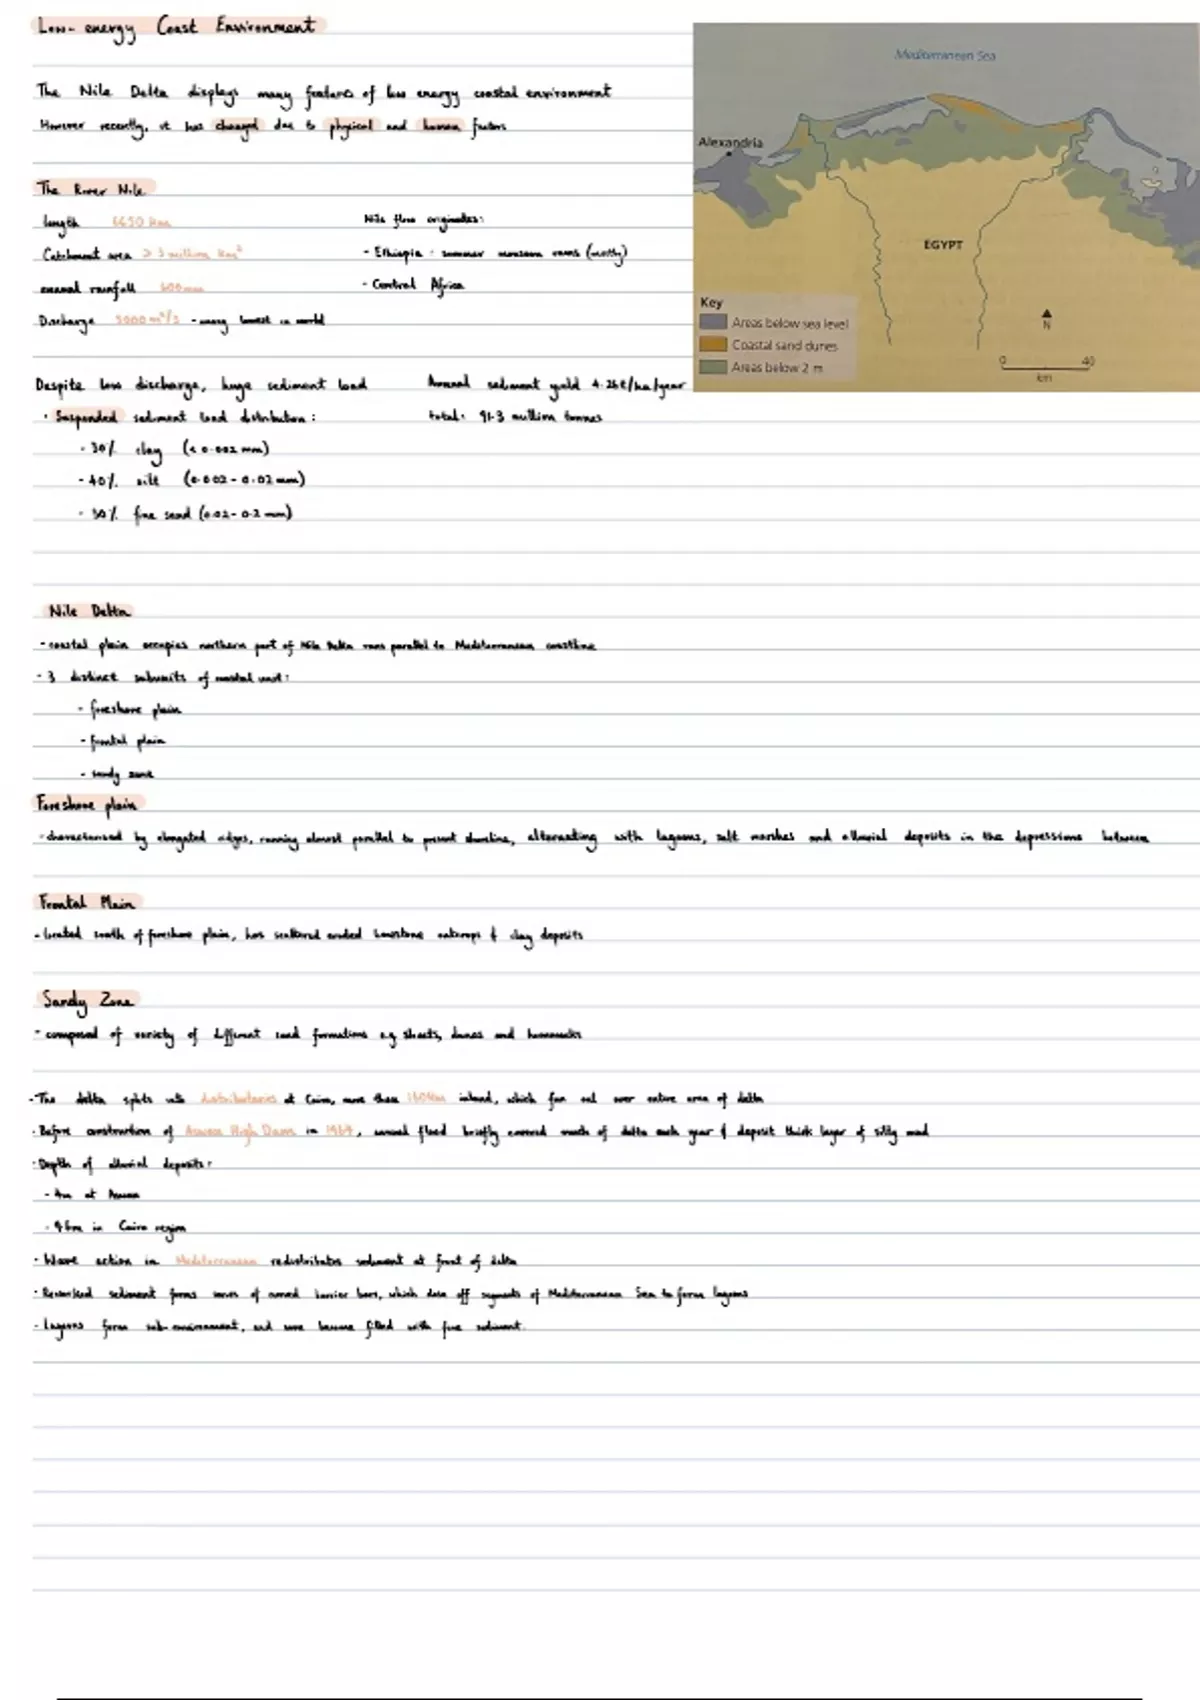 Low-energy Coast Environment
Mediterranean Sea
The Nile Delta displays many features of low energy coastal environment
However recently, it has changed due to physical and human factors
Alexandria
The River Nile
length 6650 km
Nile flow originates:
Catchment area > 3 million km²
- Ethiopia - summer monsoon rains (mostly)
EGYPT
annual rainfall 600mm
- Central Africa
Discharge 5000 m³/s - many lowest in world
Key
Areas below sea level
Coastal sand dunes
Areas below 2 m
N
0 40
km
Despite low discharge, huge sediment load
Annual sediment yield 4.26t/ha/year
· Suspended sediment load distribution:
total: 91.3 million tonnes
- 30% clay (<0.002 mm)
- 40% silt (0.002 - 0.02 mm)
- 30% fine sand (0.02 - 0.2 mm)
Nile Delta
- coastal plain occupies northern part of Nile Delta runs parallel to Mediterranean coastline
- 3 distinct subunits of coastal unit:
- foreshore plain
- frontal plain
- sandy zone
Foreshore plain
- characterised by elongated ridges, running almost parallel to present shoreline, alternating with lagoons, salt marshes and alluvial deposits in the depressions between
Frontal Plain
- located south of foreshore plain, has scattered eroded limestone outcrops & clay deposits
Sandy Zone
- composed of variety of different sand formations e.g sheets, dunes and hummocks
- The delta splits into distributaries at Cairo, more than 160km inland, which fan out over entire area of delta
· Before construction of Aswan High Dam in 1964, annual flood briefly covered much of delta each year & deposit thick layer of silty mud
· Depth of alluvial deposits:
- 4m at Aswan
- 9.6m in Cairo region
· Wave action in Mediterranean redistributes sediment at front of delta
· Reworked sediment forms series of curved barrier bars, which close off segments of Mediterranean Sea to form lagoons
- Lagoons form sub-environment, and some become filled with fine sediment.